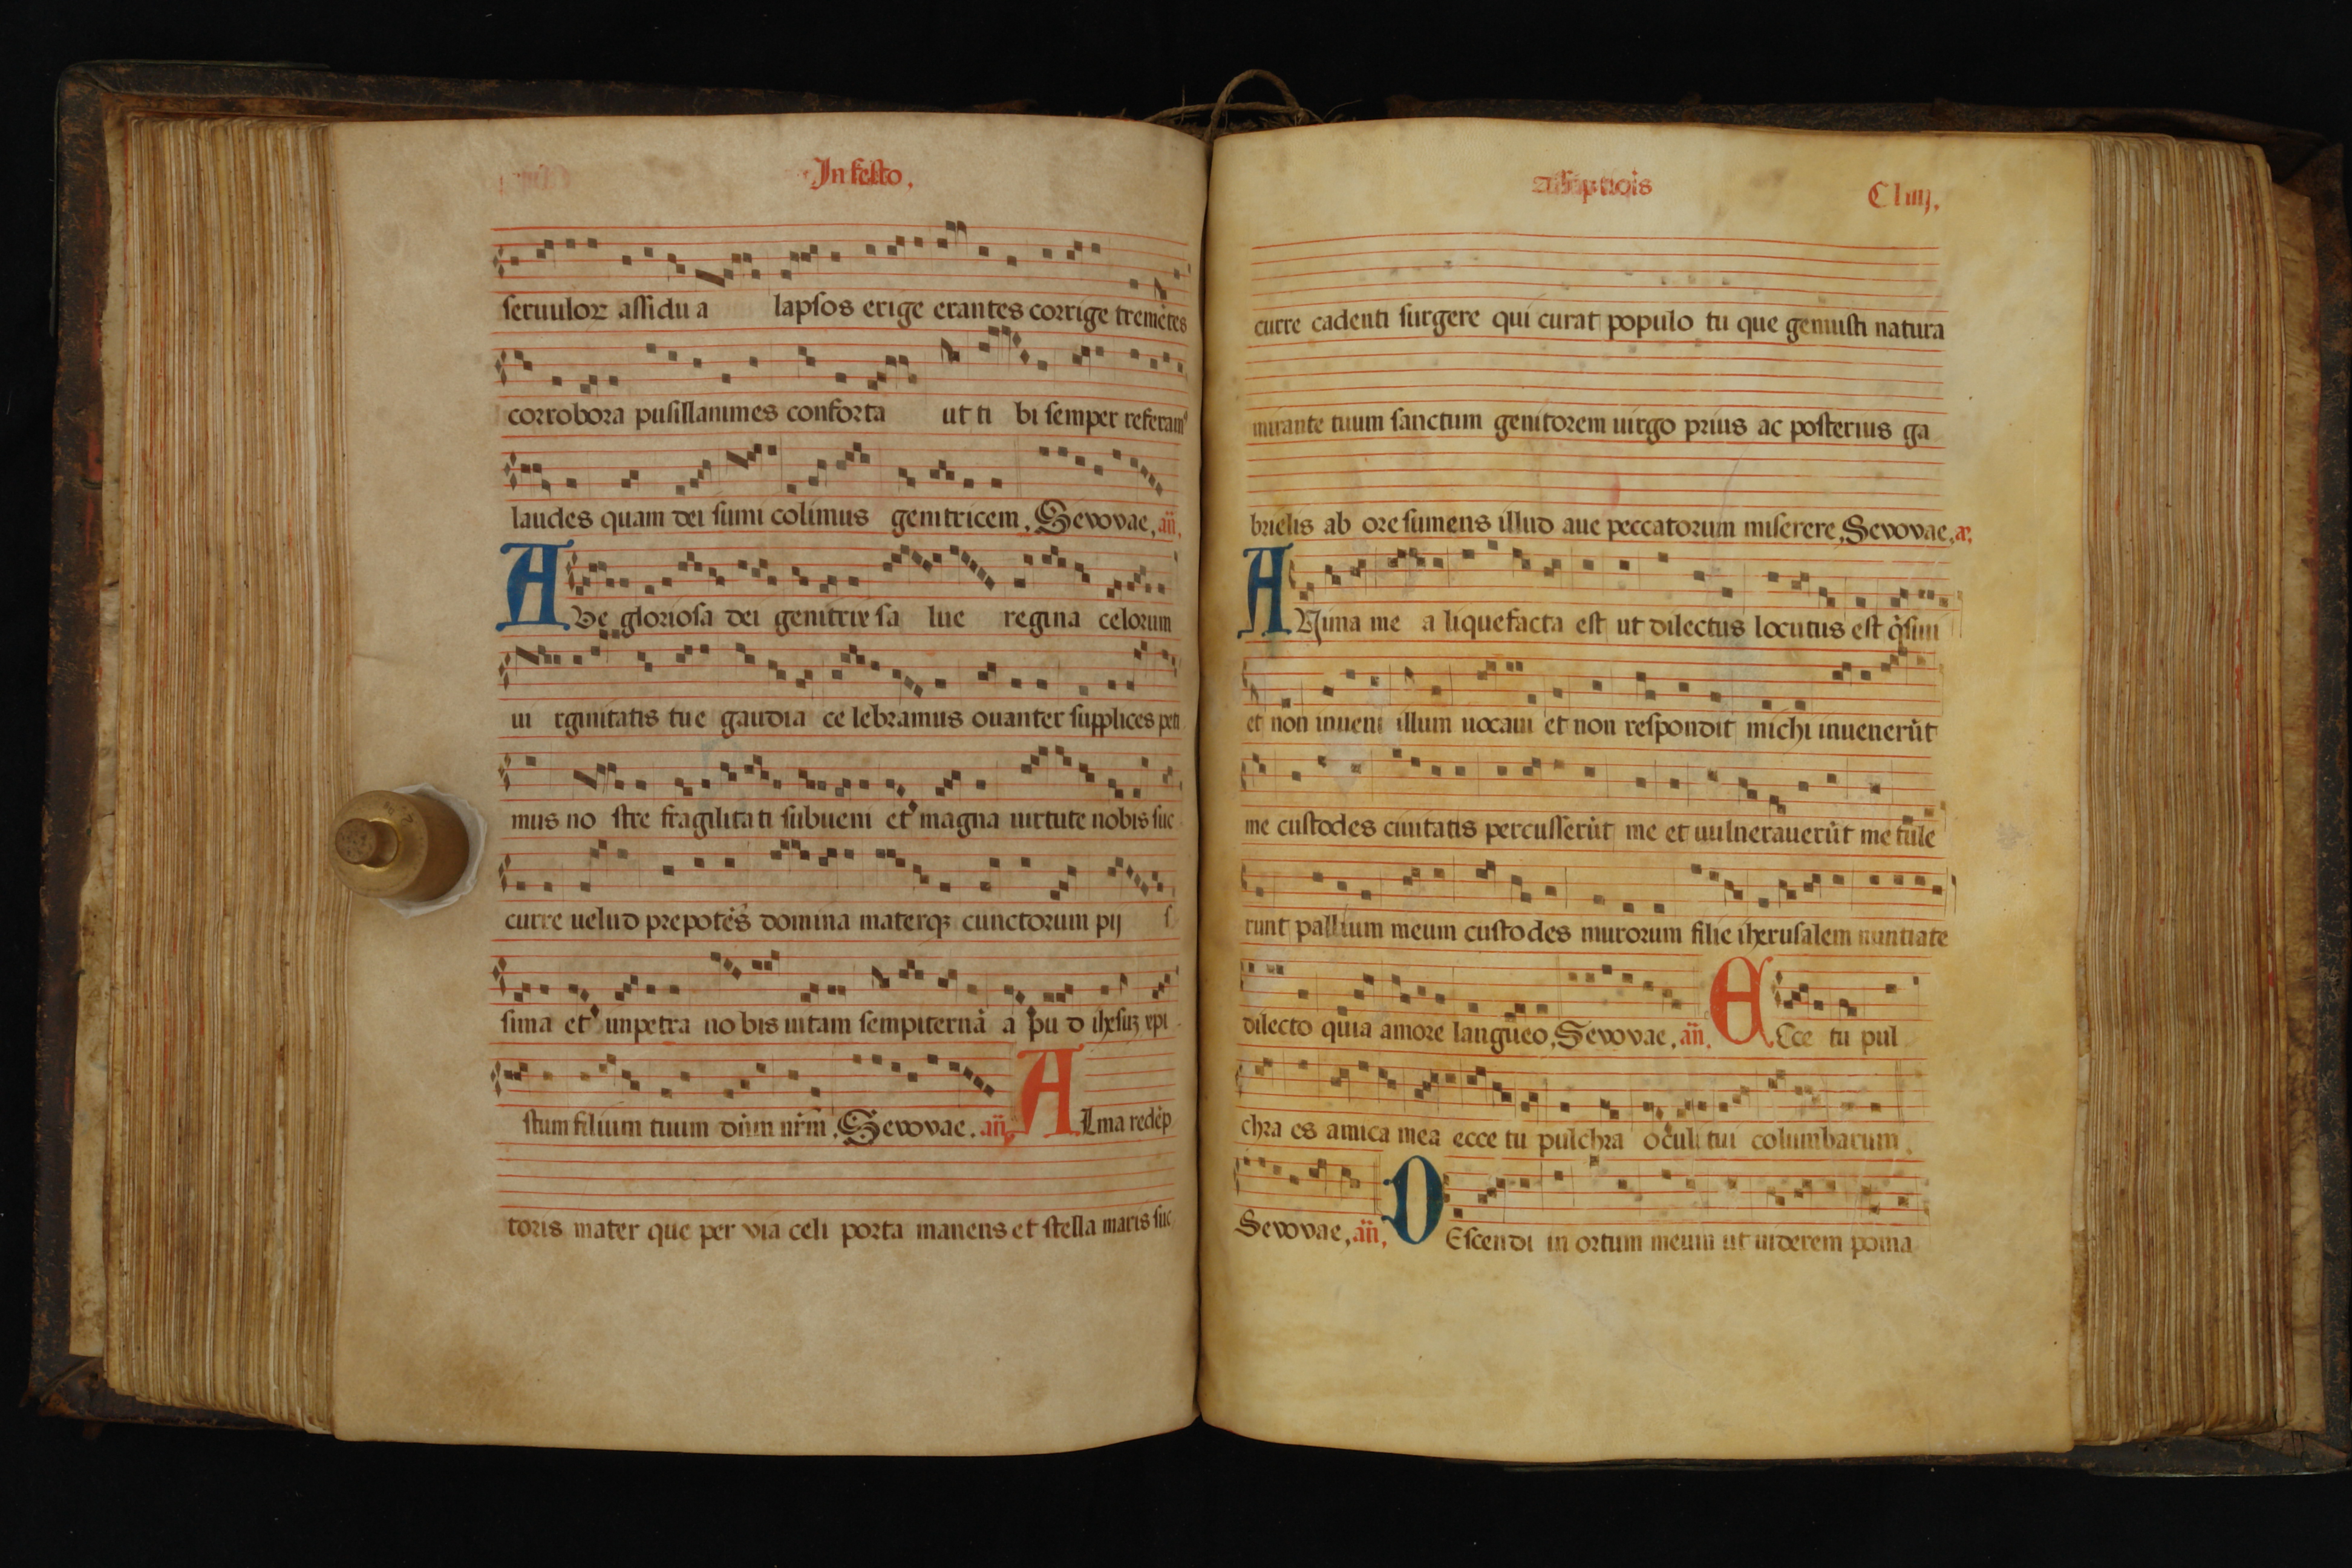 In festo,
seruuloꝝ assidua lapsos erige erantes corrige tremētes
corrobora pusillanimes conforta ut ti bi semper referamꝰ
laudes quam dei sumi colimus genitricem, Sevovae, añ,
AVe gloriosa dei genitrix sa lue regina celorum
ui rginitatis tue gaudia ce lebramus ouanter supplices peti
mus no stre fragilitati subueni et magna uirtute nobis suc
curre uelud prepotēs domina materqꝫ cunctorum pij s
sima et impetra nobis uitam sempiternā a pu d ihesuꝫ xpi
stum filium tuum dñm nr̄m, Sevovae, añ, ALma redēp
toris mater que per via celi porta manens et stella maris suc
assūptiōis
Cliiij,
curre cadenti surgere qui curat populo tu que genuisti natura
mirante tuum sanctum genitorem uirgo prius ac posterius ga
brielis ab ore sumens illud aue peccatorum miserere, Sevovae, a,
ANima me a liquefacta est ut dilectus locutus est q̄siui
et non inueni illum uocaui et non respondit michi inuenerūt
me custodes ciuitatis percusserūt me et uulnerauerūt me tule
runt pallium meum custodes murorum filie iherusalem nuntiate
dilecto quia amore langueo, Sevovae, añ, ECce tu pul
chra es amica mea ecce tu pulchra oculi tui columbarum,
Sevovae, añ, DEscendi in ortum meum ut uiderem poma